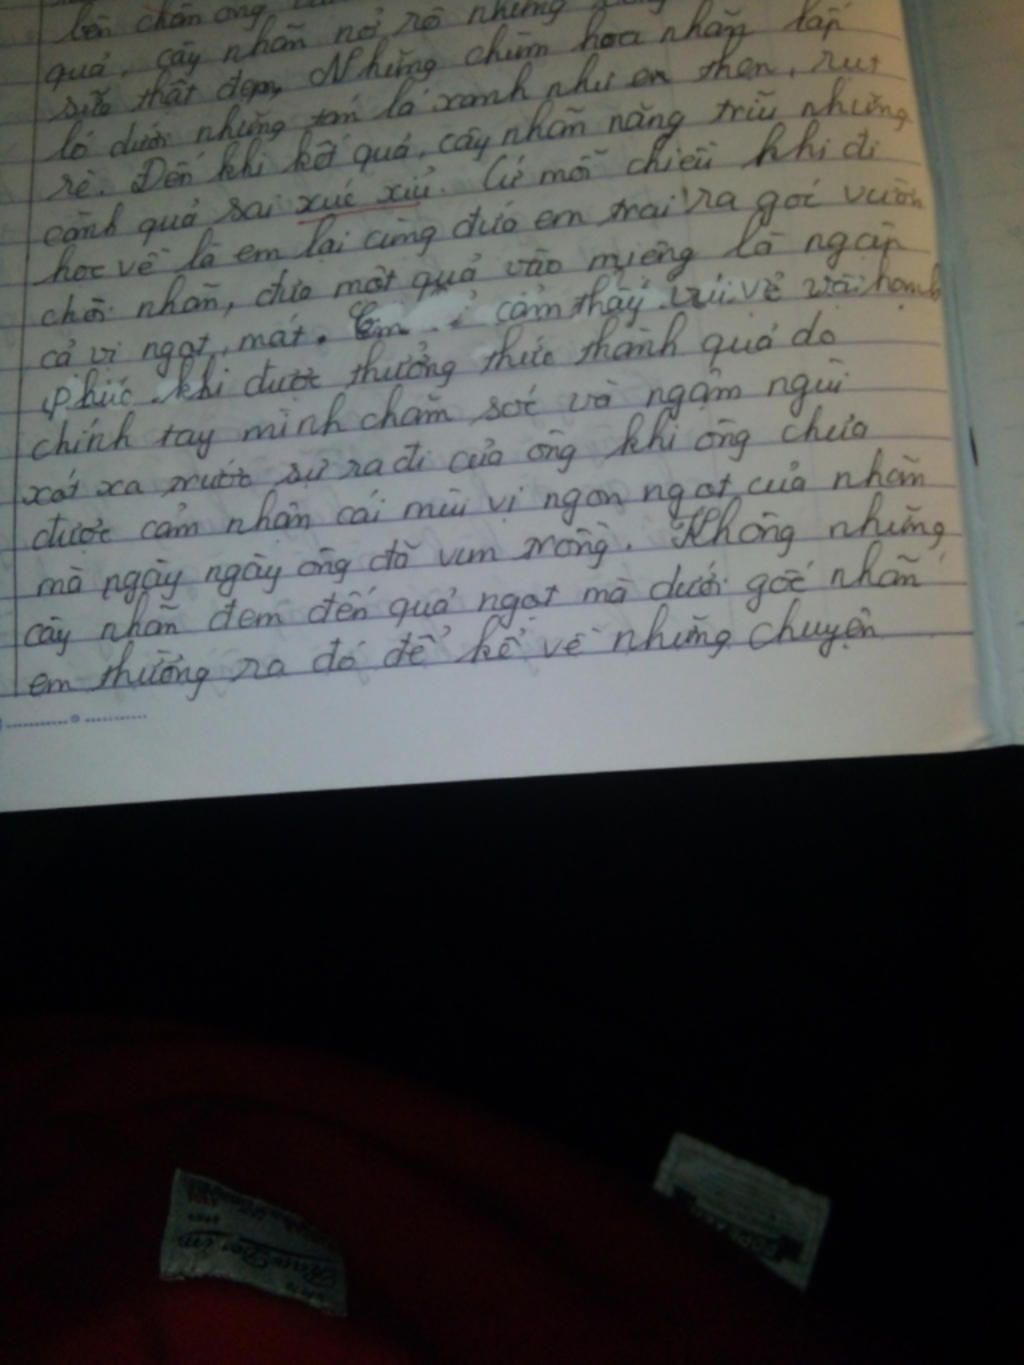 bên chân ông
quả, cây nhãn nở rộ những
sữa thật đẹp, Những chùm hoa nhãn lấp
ló dưới những tán lá xanh như e then, rụt
rè. Đến khi kết quả, cây nhãn nặng trĩu những
cành quả sai xúc xiu. Cứ mỗi chiều khi đi
học về là em lại cùng đứa em trai ra góc vườn
chơi nhãn, đưa một quả vào miệng là ngập
cả vị ngọt, mát. Em cảm thấy vui vẻ và hạnh
phúc khi được thưởng thức thành quả do
chính tay mình chăm sóc và ngậm ngùi
xót xa trước sự ra đi của ông khi ông chưa
được cảm nhận cái mùi vị ngon ngọt của nhãn
mà ngày ngày ông đã vun trồng. Không những
cây nhãn đem đến quả ngọt mà dưới gốc nhãn
em thường ra đó để kể về những chuyện